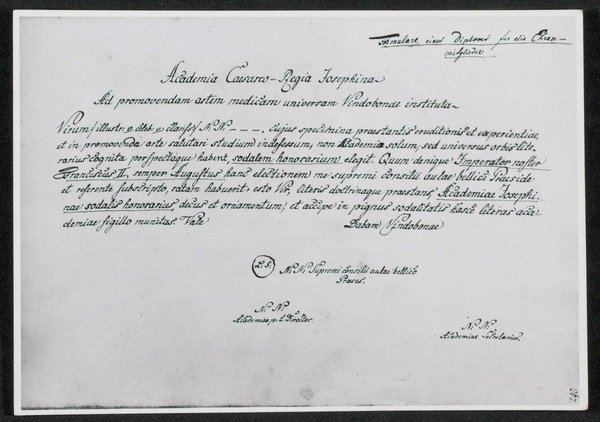 Formulare eines Diploms für die Ehren-
mitglieder
Academia Caesareo-Regia Josephina
Ad promovendam artem medicam universam Vindobonae instituta
Virum/illustr. v. celeb. v. clariss/ N: N: - - -, cujus specimina praestantis eruditionis et experientiae,
et in promovenda arte salutari studium indefessum, non Academia solum, sed universus orbis lite-
rarius cognita perspectaque habent, sodalem honorarium elegit. Quum denique Imperator noster
Franciscus II, semper Augustus hanc electionem me supremi consilii aulae bellici Praeside
et referente subscripto, ratam habuerit: esto Vir, literis doctrinaque praestans, Academiae Josephi-
nae sodalis honorarius, decus et ornamentum, et accipe in pignus sodalitatis hasce literas aca-
demiae sigillo munitas. Vale
Dabam Vindobonae
L.S.
N: N: Supremi consilii aulae bellico
Praeses.
N: N:
Academiae p: t: Director.
N: N:
Academiae Secretarius.